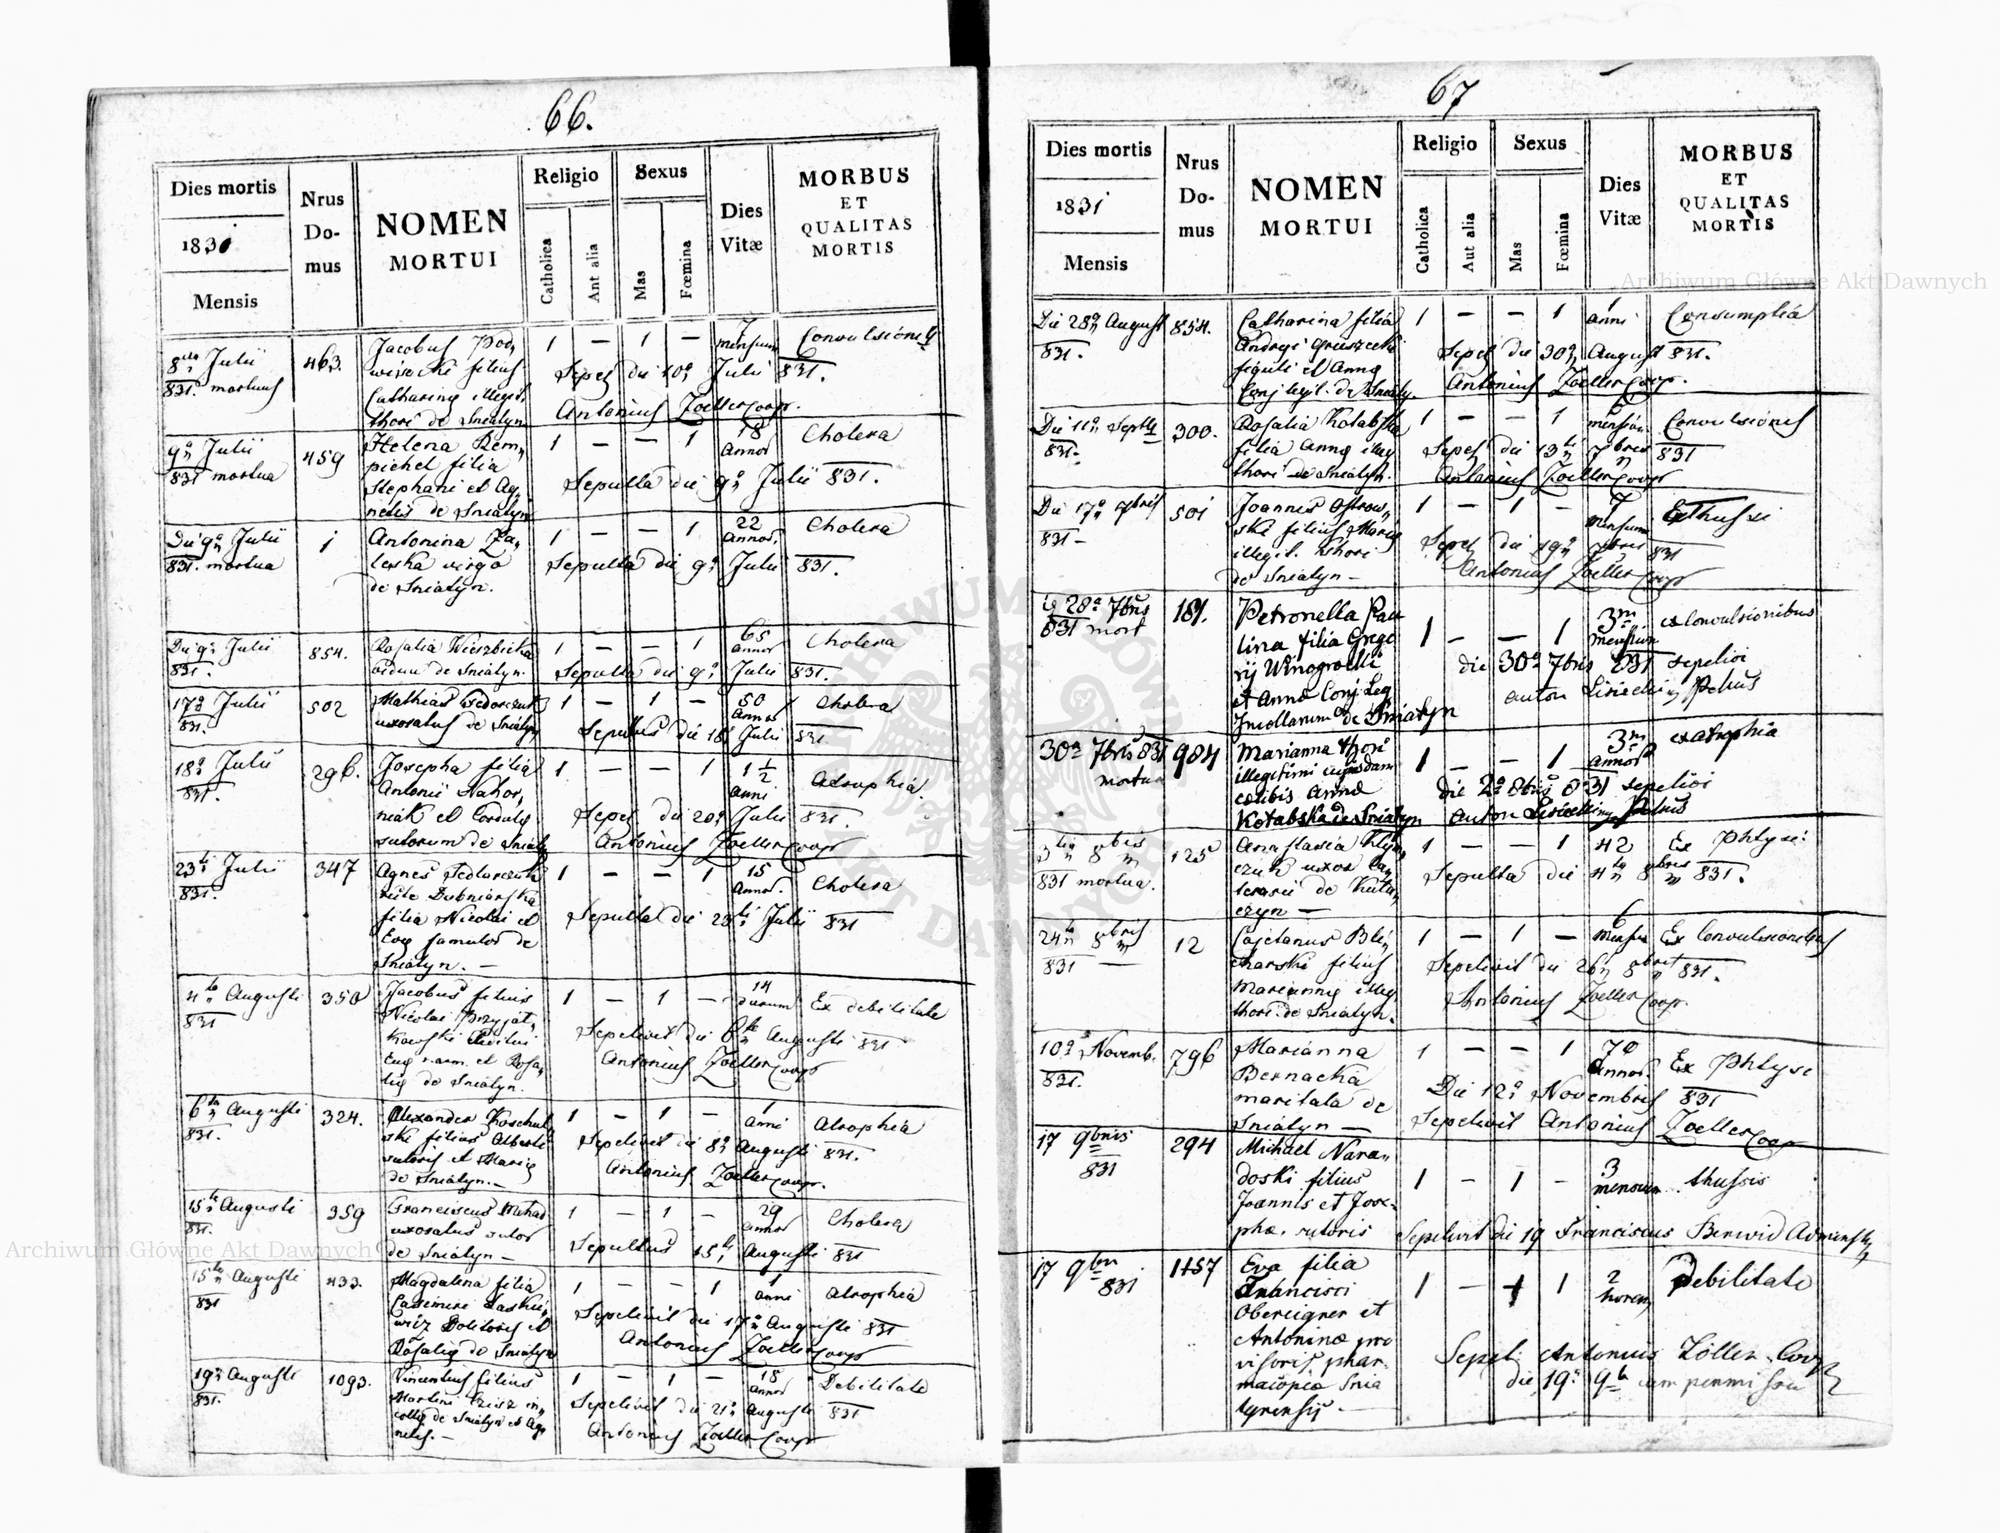 66.
Dies mortis
1831
Mensis
Nrus
Do-
mus
NOMEN
MORTUI
Religio
Catholica
Aut alia
Sexus
Mas
Fœmina
Dies
Vitæ
MORBUS
ET
QUALITAS
MORTIS
Julii
831. mortuus
463.
Jacobus
filius
Catharinæ illegit.
thori de Sniatyn
1 — 1 —
7
mensium
Convulsiones
Sepel. die 10a Julii 831.
Antonius Zoeller Coop.
9a Julii
831 mortua
459
Helena
filia
Stephani et Ag-
netis de Sniatyn
1 — — 1
18
Annor
Cholera
Sepulta die 9a Julii 831.
Die 9a Julii
831. mortua
1
Antonina Za-
leska virgo
de Sniatyn.
1 — — 1
22
Annor.
Cholera
Sepulta die 9a Julii 831.
Die 9a Julii
831.
854.
Rosalia Wierzbicka
vidua de Sniatyn.
1 — — 1
65
annor
Cholera
Sepulta die 9a Julii 831.
17a Julii
831.
502
Mathias Fedorczuk
uxoratus de Sniatyn
1 — 1 —
50
Annor
Cholera
Sepultus die 18 Julii 831
18a Julii
831.
296.
Josepha filia
Antonii Nahor-
niak et Cordulæ
sutorum de Sniatyn
1 — — 1
1 1/2
anni
Atrophia.
Sepel. die 20a Julii 831.
Antonius Zoeller Coop
23 Julii
831.
347
Agnes Fedorczuk
Dubniarska
filia Nicolai et
Evæ famulor de
Sniatyn. —
1 — — 1
15
Annor.
Cholera
Sepulta die 23 Julii 831
4 Augusti
831
350
Jacobus filius
Nicolai Przyjat-
kowski
et Rosa-
liæ de Sniatyn.
1 — 1 —
14
dierum
Ex debilitate
Sepelivit die 6 Augusti 831
Antonius Zoeller Coop
6 Augusti
831.
324.
Alexander
filius Alberti
sutoris et Mariæ
de Sniatyn. —
1 — 1 —
1
anni
Atrophia
Sepelivit die 8a Augusti 831.
Antonius Zoeller Coop.
15 Augusti
831.
359
Franciscus
uxoratus sutor
de Sniatyn —
1 — 1 —
29
annor
Cholera
Sepultus 15 Augusti 831
15 Augusti
831
433.
Magdalena filia
Casimiri Laskie-
wicz Dolitoris et
Rosaliæ de Sniatyn
1 — — 1
1
anni
Atrophia
Sepelivit die 17a Augusti 831
Antonius Zoeller Coop
19a Augusti
831.
1093.
Vincentius filius
Martini in-
colæ de Sniatyn et Ag-
netis. —
1 — 1 —
18
annor
Debilitate
Sepelivit die 21a Augusti 831
Antonius Zoeller Coop
67
Dies mortis
1831
Mensis
Nrus
Do-
mus
NOMEN
MORTUI
Religio
Catholica
Aut alia
Sexus
Mas
Fœmina
Dies
Vitæ
MORBUS
ET
QUALITAS
MORTIS
Die 28a August
831.
854.
Catharina filia
Andreæ Gruszecki
figuli et Annæ
Conj legit. de Sniatyn.
1 — — 1
1
anni
Consumptia
Sepel die 30a August 831.
Antonius Zoeller Coop.
Die 11a Septb
831.
300.
Rosalia Kolabska
filia Annæ illeg
thori de Sniatyn.
1 — — 1
Convulsiones
Sepel die 13 7bris 831
Antonius Zoeller Coop
Die 17a
831 —
501
Joannes Ostrow-
ski filius Mariæ
illegit. thori
de Sniatyn —
1 — 1 —
7
mensium
Ex Thussi
Sepel die 19a 7bris 831
Antonius Zoeller Coop
28a 7bris
831 mort
181.
Petronella Pau
lina filia Grego
rij Winogrocki
et Anna Conj: Leg
Incollarum de Sniatyn
1 — — 1
3
mensium
ex Convulsionibus
die 30a 7bris 831 sepelivi
anton Lisiecki Petrus
30a 7bris 831
mortua
984
Marianna thori
illegitimi cujusdam
celibis Annæ
Kotabska de Sniatyn
1 — — 1
3
annor
ex atrophia
die 2a 8bris 831 sepelivi
anton Lisiecki Petrus
3 8bris
831 mortua.
125
Anastasia
uxor
de
czyn —
1 — — 1
42
Ex Phtysi
Sepulta die 4 8bris 831.
24 8bris
831 —
12
Cajetanus Bli-
charski filius
Mariannæ illeg
thori de Sniatyn.
1 — 1 —
6
mensi
Ex Convulsionibus
Sepelivit die 26 8bris 831.
Antonius Zoeller Coop.
10a Novemb.
831.
796
Marianna
Bernacka
maritata de
Sniatyn —
1 — — 1
70
Annor.
Ex Phtyse
Die 12a Novembris 831
Sepelivit Antonius Zoeller Coop
17 9bris
831
294
Michael Nara-
doski filius
Joannis et Jose-
phæ sutoris
1 — 1 —
3
mensium
thussis
Sepelivit die 19 Franciscus Berwid Administ
17 9bri
831
1157
Eva filia
Francisci
Obereigner et
Antoninæ pro
visoris phar-
macopiæ Snia
tynensis —
1 — 1 1
2
horem
Debilitate
Sepel. Antonius Zöller Coop
die 19a 9b cum permissu
Archiwum Główne Akt Dawnych
Archiwum Główne Akt Dawnych
ARCHIWUM GŁÓWNE AKT DAWNYCH